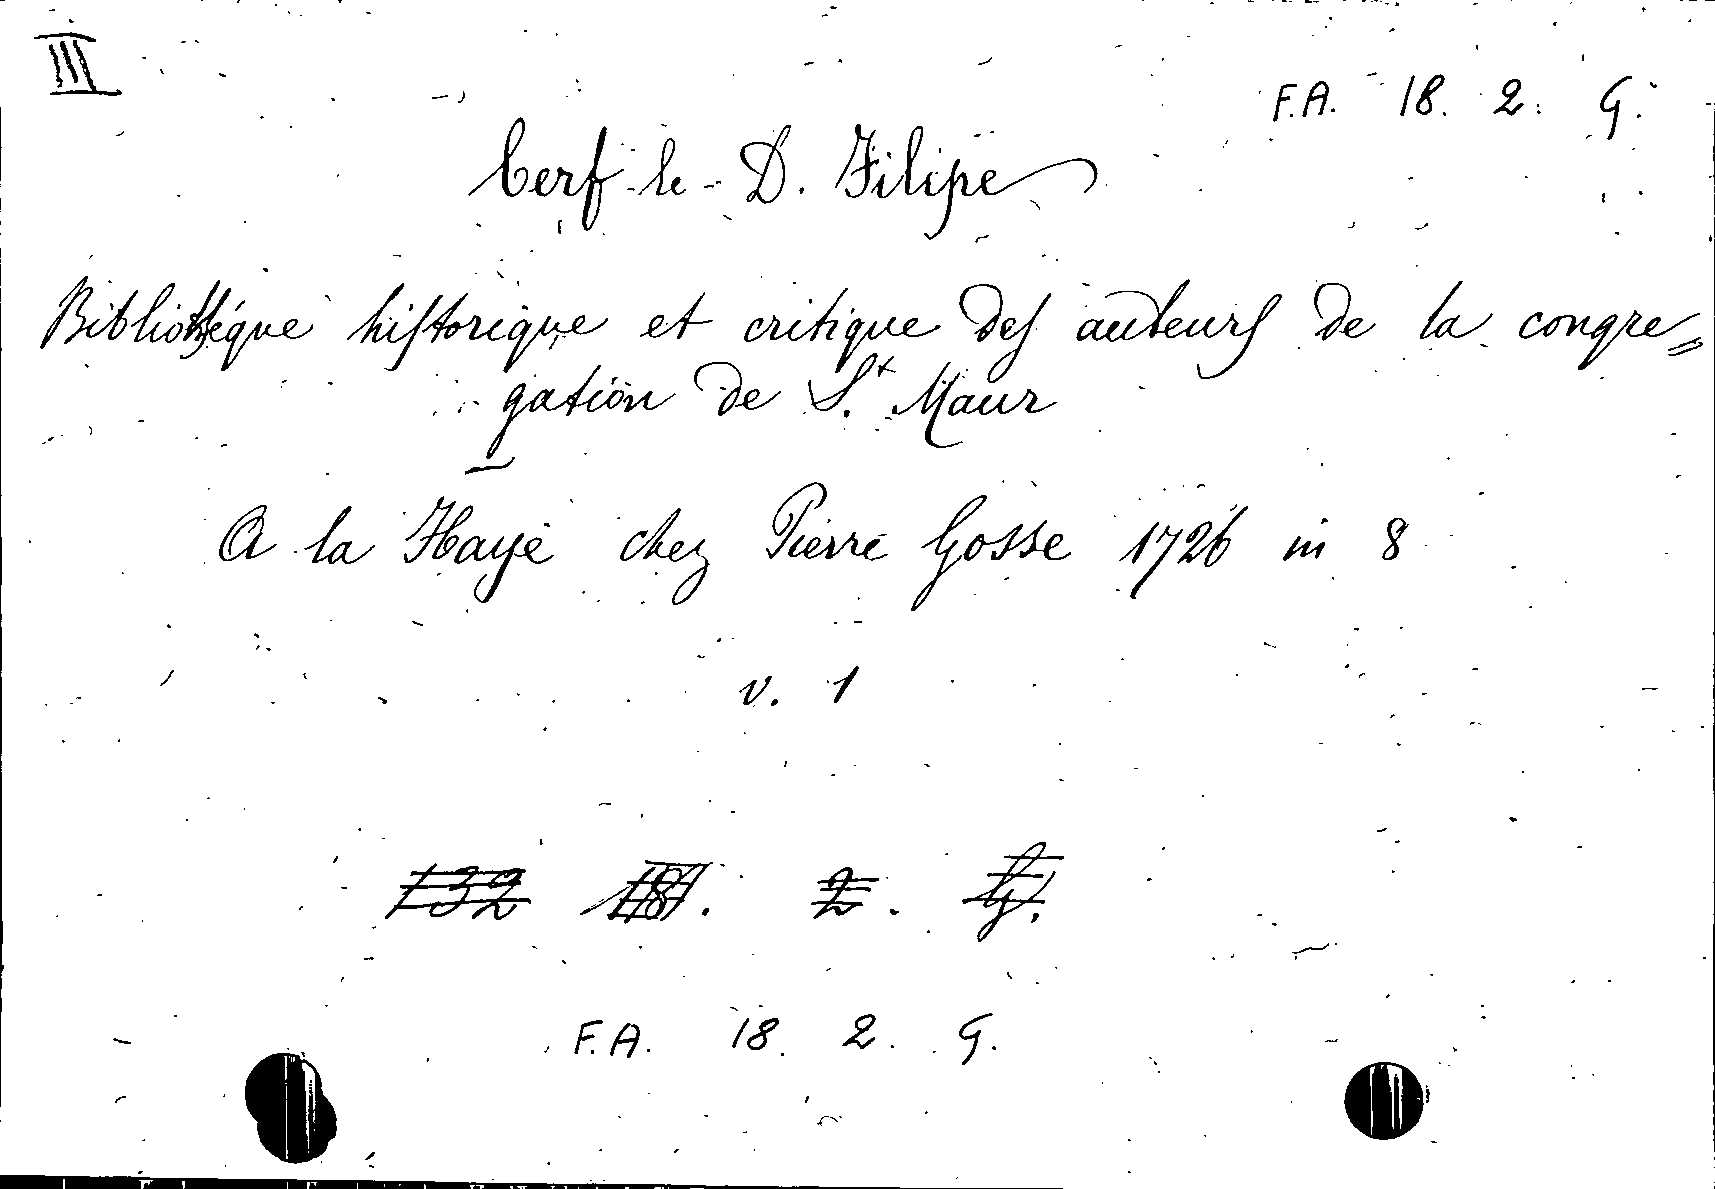 III
F.A. 18. 2. G.
Cerf-le-D. Filipe
Bibliothéque historique et critique des auteurs de la congre=
gation de S.t Maur
A la Haye chez Pierre Gosse 1726 in 8
v. 1
132 18. 2. G.
F.A. 18. 2. G.